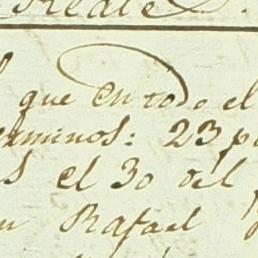 Reale.
que en todo el
erminos: 23 p
s el 30 del
n Rafael